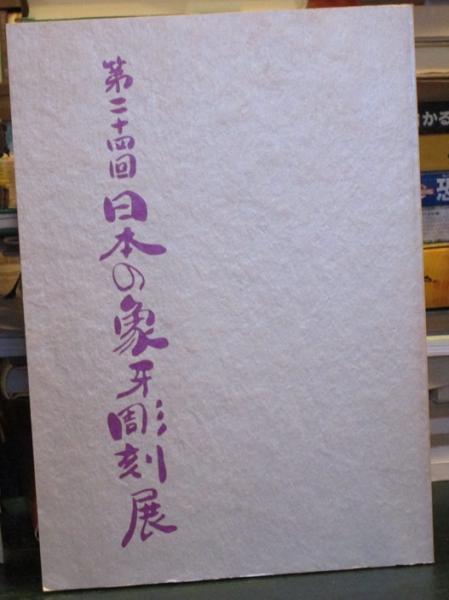 第二十四回 日本の象牙彫刻展
かる
恐